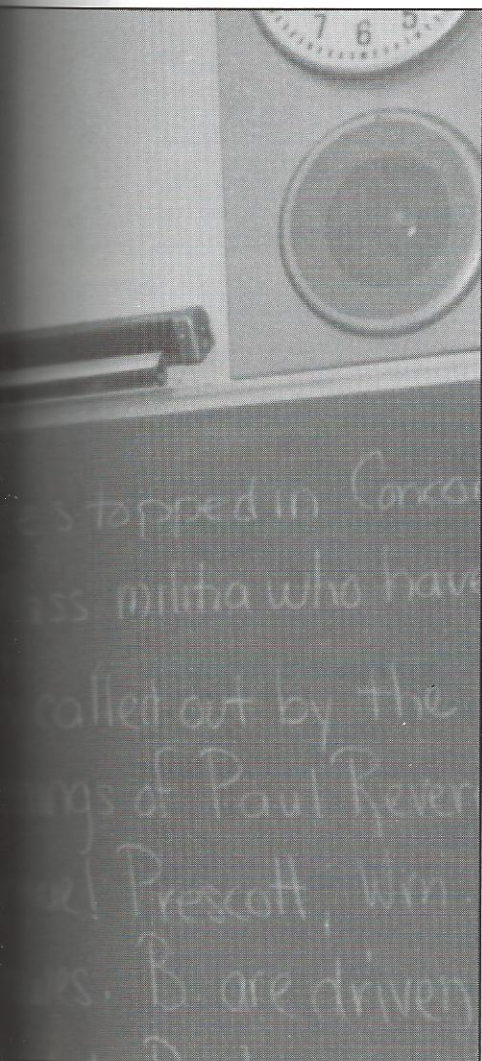 7 6 5
stopped in Concor
ass militia who have
called out by the
ings of Paul Rever
el Prescott, Wm.
wes. B. are driven